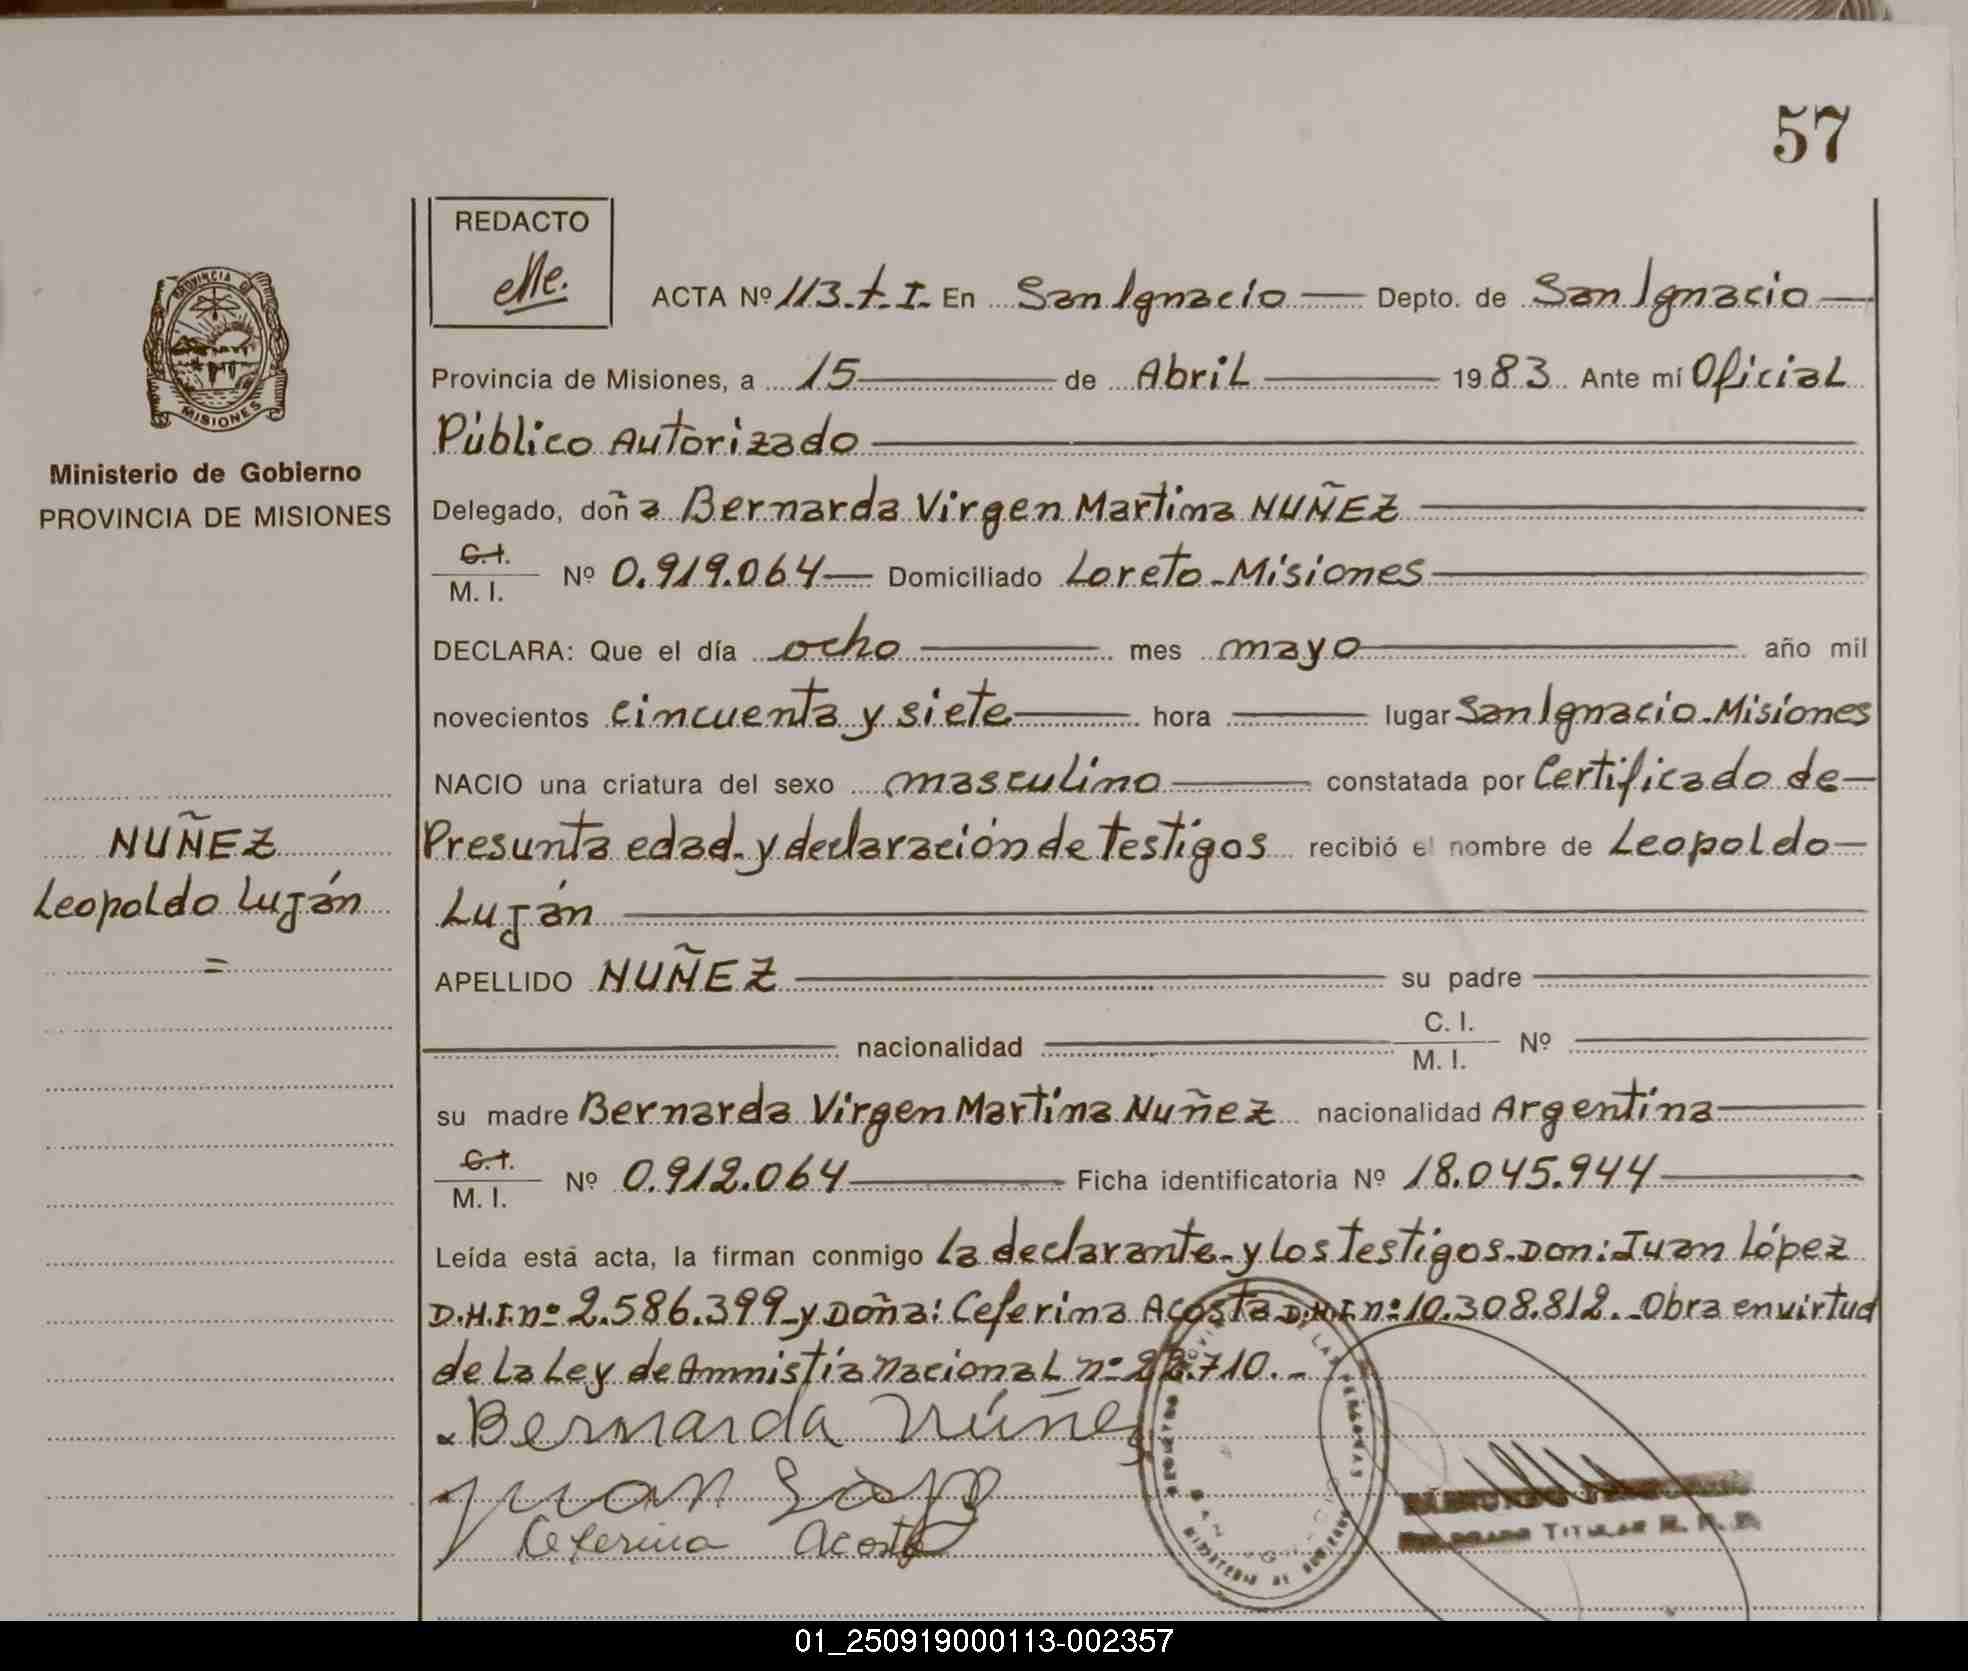 57
REDACTO
PROVINCIA DE
MISIONES
Ministerio de Gobierno
PROVINCIA DE MISIONES
NUÑEZ
Leopoldo Luján
=
ACTA Nº 113.t.I. En San Ignacio Depto. de San Ignacio
Provincia de Misiones, a 15 de Abril 1983 Ante mí Oficial
Público Autorizado
Delegado, doña Bernarda Virgen Martina NUÑEZ
C.I.
M. I. Nº 0.919.064 Domiciliado Loreto-Misiones
DECLARA: Que el día ocho mes mayo año mil
novecientos cincuenta y siete hora lugar San Ignacio-Misiones
NACIO una criatura del sexo masculino constatada por Certificado de
Presunta edad y declaración de testigos recibió el nombre de Leopoldo
Luján
APELLIDO NUÑEZ su padre
nacionalidad C. I.
M. I. Nº
su madre Bernarda Virgen Martina Nuñez nacionalidad Argentina
C.I.
M. I. Nº 0.912.064 Ficha identificatoria Nº 18.045.944
Leída está acta, la firman conmigo la declarante y los testigos Don: Juan López
D.N.I.nº 2.586.399 y Doña: Ceferina Acosta D.N.I nº 10.308.812.- Obra en virtud
de la Ley de Amnistía Nacional nº 22.710.-
Bernarda Núñez
Juan
Ceferina Acosta
MINISTERIO DE GOBIERNO
TITULAR R. P.
01_250919000113-002357